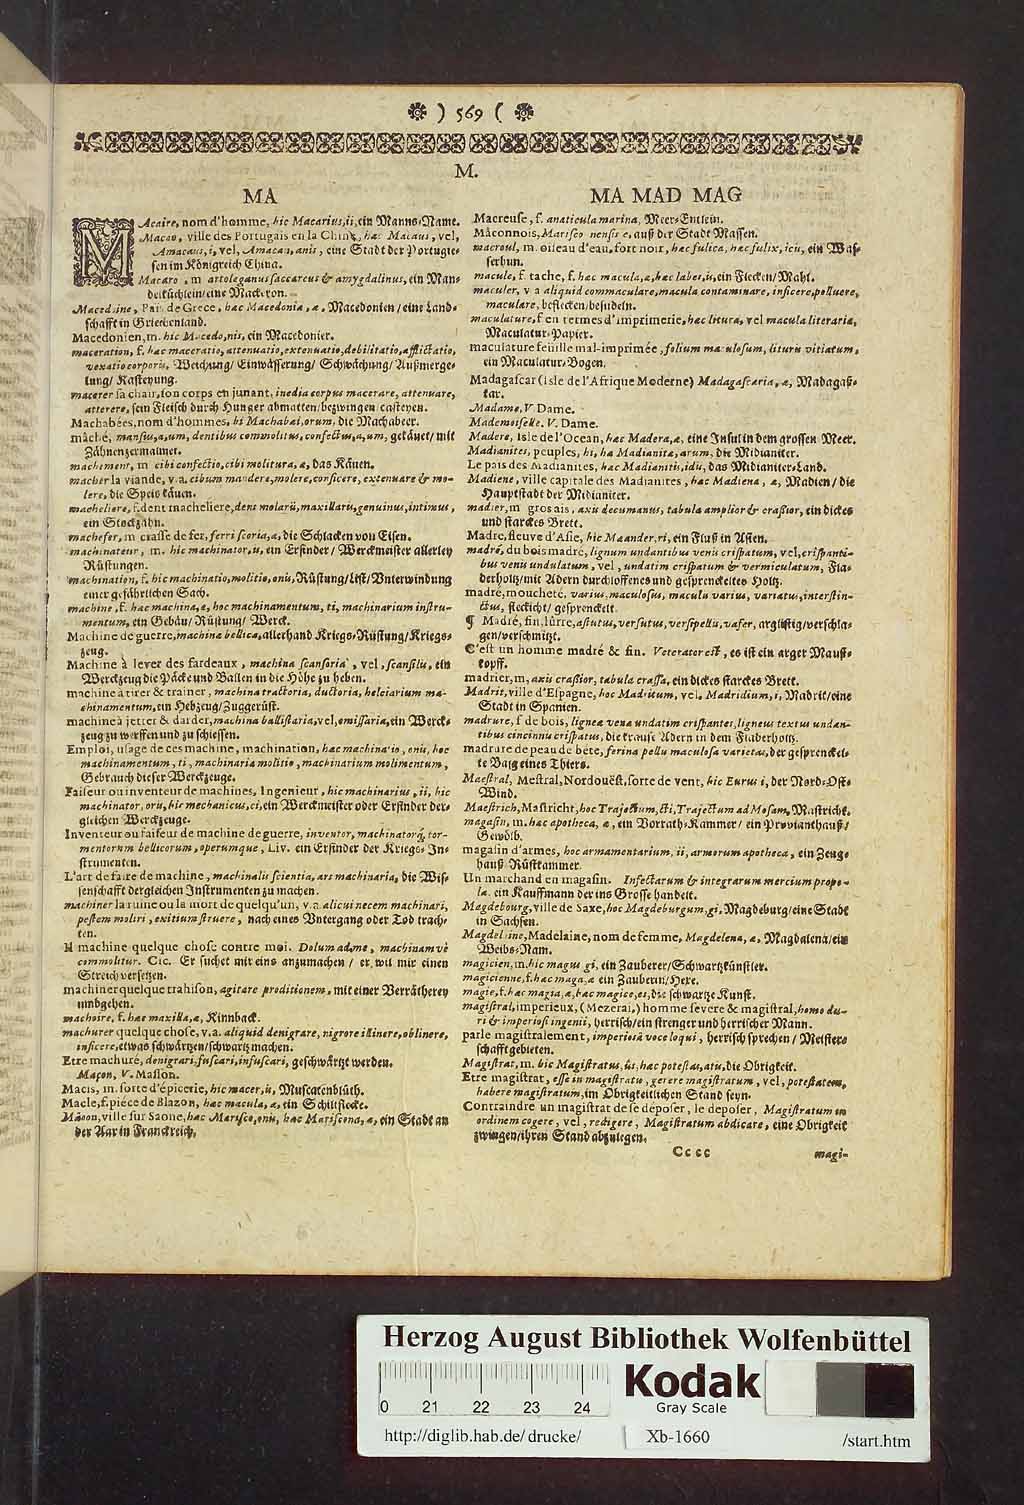 ) 569 (
M.
MA
MAcaire, nom d'homme, hic Macarius, ii, ein Manns-Name.
Macao, ville des Portugais en la Chine, hæc Macaus, vel,
Amacaus, i, vel, Amacan, anis, eine Stadt der Portugie-
sen im Königreich China.
Macaro, m artoleganus saccareus & amygdalinus, ein Man-
delküchlein/eine Mackeron.
Macedoine, Païs de Grece, hæc Macedonia, æ, Macedonien/eine Land-
schafft in Griechenland.
Macedonien, m. hic Macedo, nis, ein Macedonier.
maceration, f. hæc maceratio, attenuatio, extenuatio, debilitatio, afflictatio,
vexatio corporis, Weichung/ Einwässerung/ Schwächung/ Außmerge-
lung/ Kasteyung.
macerer sa chair, son corps en junant, inedia corpus macerare, attenuare,
atterere, sein Fleisch durch Hunger abmatten/bezwingen/casteyen.
Machabées, nom d'hommes, hi Machabæi, orum, die Machabeer.
mâché, mansus, a, um, dentibus commolitus, confectus, a, um, gekäuet/ mit
Zähnen zermalmet.
machement, m cibi confectio, cibi molitura, æ, das Käuen.
macher la viande, v. a. cibum mandere, molere, conficere, extenuare & mo-
lere, die Speis käuen.
macheliere, f. dent macheliere, dens molaris, maxillaris, genuinus, intimus,
ein Stockzahn.
machefer, m crasse de fer, ferri scoria, æ, die Schlacken von Eisen.
machinateur, m. hic machinator, is, ein Erfinder/ Werckmeister allerley
Rüstungen.
machination, f. hæc machinatio, molitio, onis, Rüstung/List/Unterwindung
einer gefährlichen Sach.
machine, f. hæc machina, æ, hoc machinamentum, ti, machinarium instru-
mentum, ein Gebäu/ Rüstung/ Werck.
Machine de guerre, machina bellica, allerhand Kriegs-Rüstung/Kriegs-
zeug.
Machine à lever des fardeaux, machina scansoria, vel, scansilis, ein
Werckzeug die Päcke und Ballen in die Höhe zu heben.
machine à tirer & trainer, machina tractoria, ductoria, helciarium ma-
chinamentum, ein Hebzeug/Zuggerüst.
machine à jetter & darder, machina ballistaria, vel, emissaria, ein Werck-
zeug zu werffen und zu schiessen.
Emploi, usage de ces machine, machination, hæc machinatio, onis, hoc
machinamentum, ti, machinaria molitio, machinarium molimentum,
Gebrauch dieser Werckzeuge.
Faiseur ou inventeur de machines, Ingenieur, hic machinarius, ii, hic
machinator, oris, hic mechanicus, ci, ein Werckmeister oder Erfinder der-
gleichen Werckzeuge.
Inventeur ou faiseur de machine de guerre, inventor, machinatorq́; tor-
mentorum bellicorum, operumque, Liv. ein Erfinder der Kriegs-In-
strumenten.
L'art de faire de machine, machinalis scientia, ars machinaria, die Wis-
senschafft dergleichen Instrumenten zu machen.
machiner la ruine ou la mort de quelqu'un, v. a alicui necem machinari,
pestem moliri, exitium struere, nach eines Untergang oder Tod trach-
ten.
Il machine quelque chose contre moi. Dolum ad me, machinamvè
commolitur. Cic. Er suchet mir eins anzumachen/ er wil mir einen
Streich versetzen.
machiner quelque trahison, agitare proditionem, mit einer Verrätherey
umbgehen.
machoire, f. hæc maxilla, æ, Kinnback.
machurer quelque chose, v. a. aliquid denigrare, nigrore illinere, oblinere,
inficere, etwas schwärtzen/schwartz machen.
Etre machuré, denigrari, fuscari, infuscari, geschwärtzt werden.
Maçon, V. Masson.
Macis, m. sorte d'épicerie, hic macer, is, Muscatenblüth.
Macle, f. piéce de Blazon, hæc macula, æ, ein Schiltflecke.
Mâcon, ville sur Saone, hæc Marisco, onis, hæc Mariscona, æ, ein Stadt an
der Aar in Franckreich.
MA MAD MAG
Macreuse, f. anaticula marina, Meer-Entlein.
Mâconnois, Mariscononensis e, auß der Stadt Massen.
macroul, m. oiseau d'eau, fort noir, hæc fulica, hæc fulix, icis, ein Was-
serhun.
macule, f. tache, f. hæc macula, æ, hæc labes, is, ein Flecken/Mahl.
maculer, v. a aliquid commaculare, macula contaminare, inficere, polluere,
maculare, beflecken/besudeln.
maculature, f en termes d'imprimerie, hæc litura, vel macula literaria,
Maculatur-Papier.
maculature feüille mal-imprimée, folium maculosum, lituris vitiatum,
ein Maculatur-Bogen.
Madagascar (isle de l'Afrique Moderne) Madagascaria, æ, Madagas-
kar.
Madame, V Dame.
Mademoiselle. V. Dame.
Madere, Isle de l'Ocean, hæc Madera, æ, eine Insul in dem grossen Meer.
Madianites, peuples, hi, hæ Madianitæ, arum, die Midianiter.
Le païs des Madianites, hæc Madianitis, idis, das Midianiter-Land.
Madiene, ville capitale des Madianites, hæc Madiena, æ, Madien/ die
Hauptstadt der Midianiter.
madier, m gros ais, axis decumanus, tabula amplior & crassior, ein dickes
und starckes Brett.
Madre, fleuve d'Asie, hic Mæander, ri, ein Fluß in Asien.
madré, du bois madré, lignum undantibus venis crispatum, vel, crispanti-
bus venis undulatum, vel, undatim crispatum & vermiculatum, Fla-
derholtz/mit Adern durchloffenes und gesprenckeltes Holtz.
madré, moucheté, varius, maculosus, maculis varius, variatus, interstin-
ctus, fleckicht/ gesprenckelt.
¶ Madré, fin, lûrre, astutus, versutus, versipellis, vafer, arglistig/verschla-
gen/verschmitzt.
C'est un homme madré & fin. Veterator est, es ist ein arger Mauß-
kopff.
madrier, m, axis crassior, tabula crassa, ein dickes starckes Brett.
Madrit, ville d'Espagne, hoc Madritum, vel, Madridium, i, Madrit/eine
Stadt in Spanien.
madrure, f de bois, lignea vena undatim crispantes, ligneus textus undan-
tibus cincinnis crispatus, die krause Adern in dem Fladerholtz.
madrure de peau de bête, ferina pellis maculosa varietas, der gesprenckel-
te Balg eines Thiers.
Maestral, Mestral, Nordouëst, sorte de vent, hic Eurus i, der Nord-Ost-
Wind.
Maestrich, Mastricht, hoc Trajectum, cti, Trajectum ad Mosam, Mastricht.
magasin, m. hæc apotheca, æ, ein Vorrath-Kammer/ ein Provianthauß/
Gewölb.
magasin d'armes, hoc armamentarium, ii, armorum apotheca, ein Zeug-
hauß Rüstkammer.
Un marchand en magasin. Infectarum & integrarum mercium propo-
la. ein Kauffmann der ins Grosse handelt.
Magdebourg, ville de Saxe, hoc Magdeburgum, gi, Magdeburg/eine Stadt
in Sachsen.
Magdeleine, Madelaine, nom de femme, Magdelena, æ, Magdalena/ein
Weibs-Nam.
magicien, m. hic magus gi, ein Zauberer/Schwartzkünstler.
magicienne, f. hæc maga, æ ein Zauberin/Hexe.
magie, f. hæc magia, æ, hæc magice, es, die schwartze Kunst.
magistral, imperieux, (Mezerai.) homme severe & magistral, homo du-
ri & imperiosi ingenii, herrisch/ein strenger und herrischer Mann.
parle magistralement, imperiosâ voce loqui, herrisch sprechen/ Meister-
schafft gebieten.
Magistrat, m. hic Magistratus, ûs, hæc potestas, atis, die Obrigkeit.
Etre magistrat, esse in magistratu, gerere magistratum, vel, potestatem,
habere magistratum, im Obrigkeitlichen Stand seyn.
Contraindre un magistrat de se déposer, le deposer, Magistratum in
ordinem cogere, vel, redigere, Magistratum abdicare, eine Obrigkeit
zwingen/ihren Stand abzulegen.
Cc cc
magi-
Herzog August Bibliothek Wolfenbüttel
Kodak
Gray Scale
0 21 22 23 24
http://diglib.hab.de/drucke/ Xb-1660 /start.htm